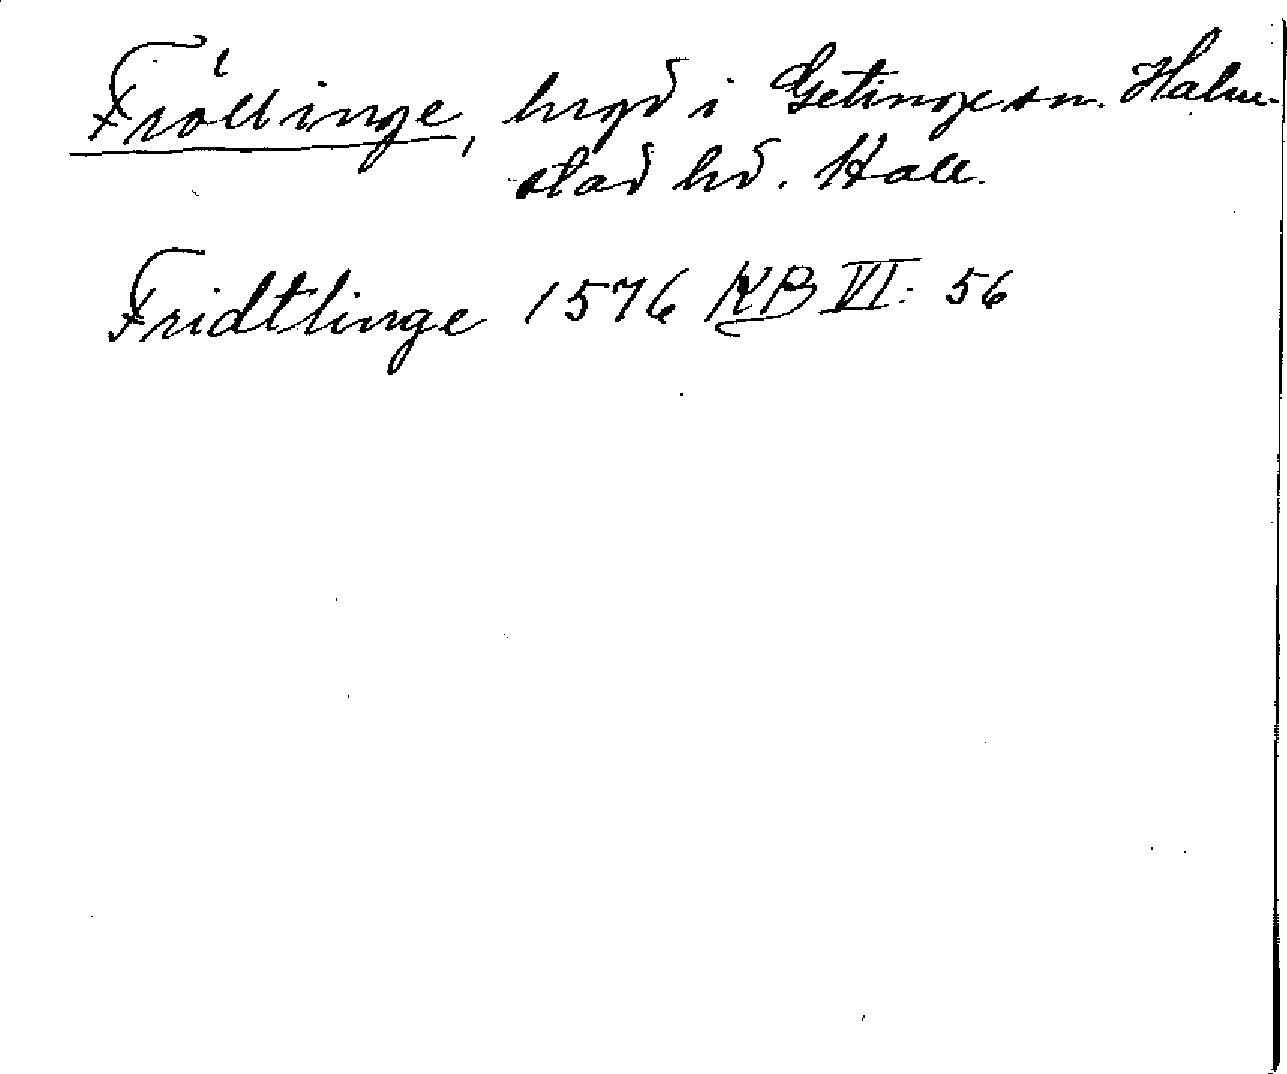 Fröllinge, hrgd i Getinge sn. Halm-
stad hd. Hall.
Fridtlinge 1576 KB VI: 56